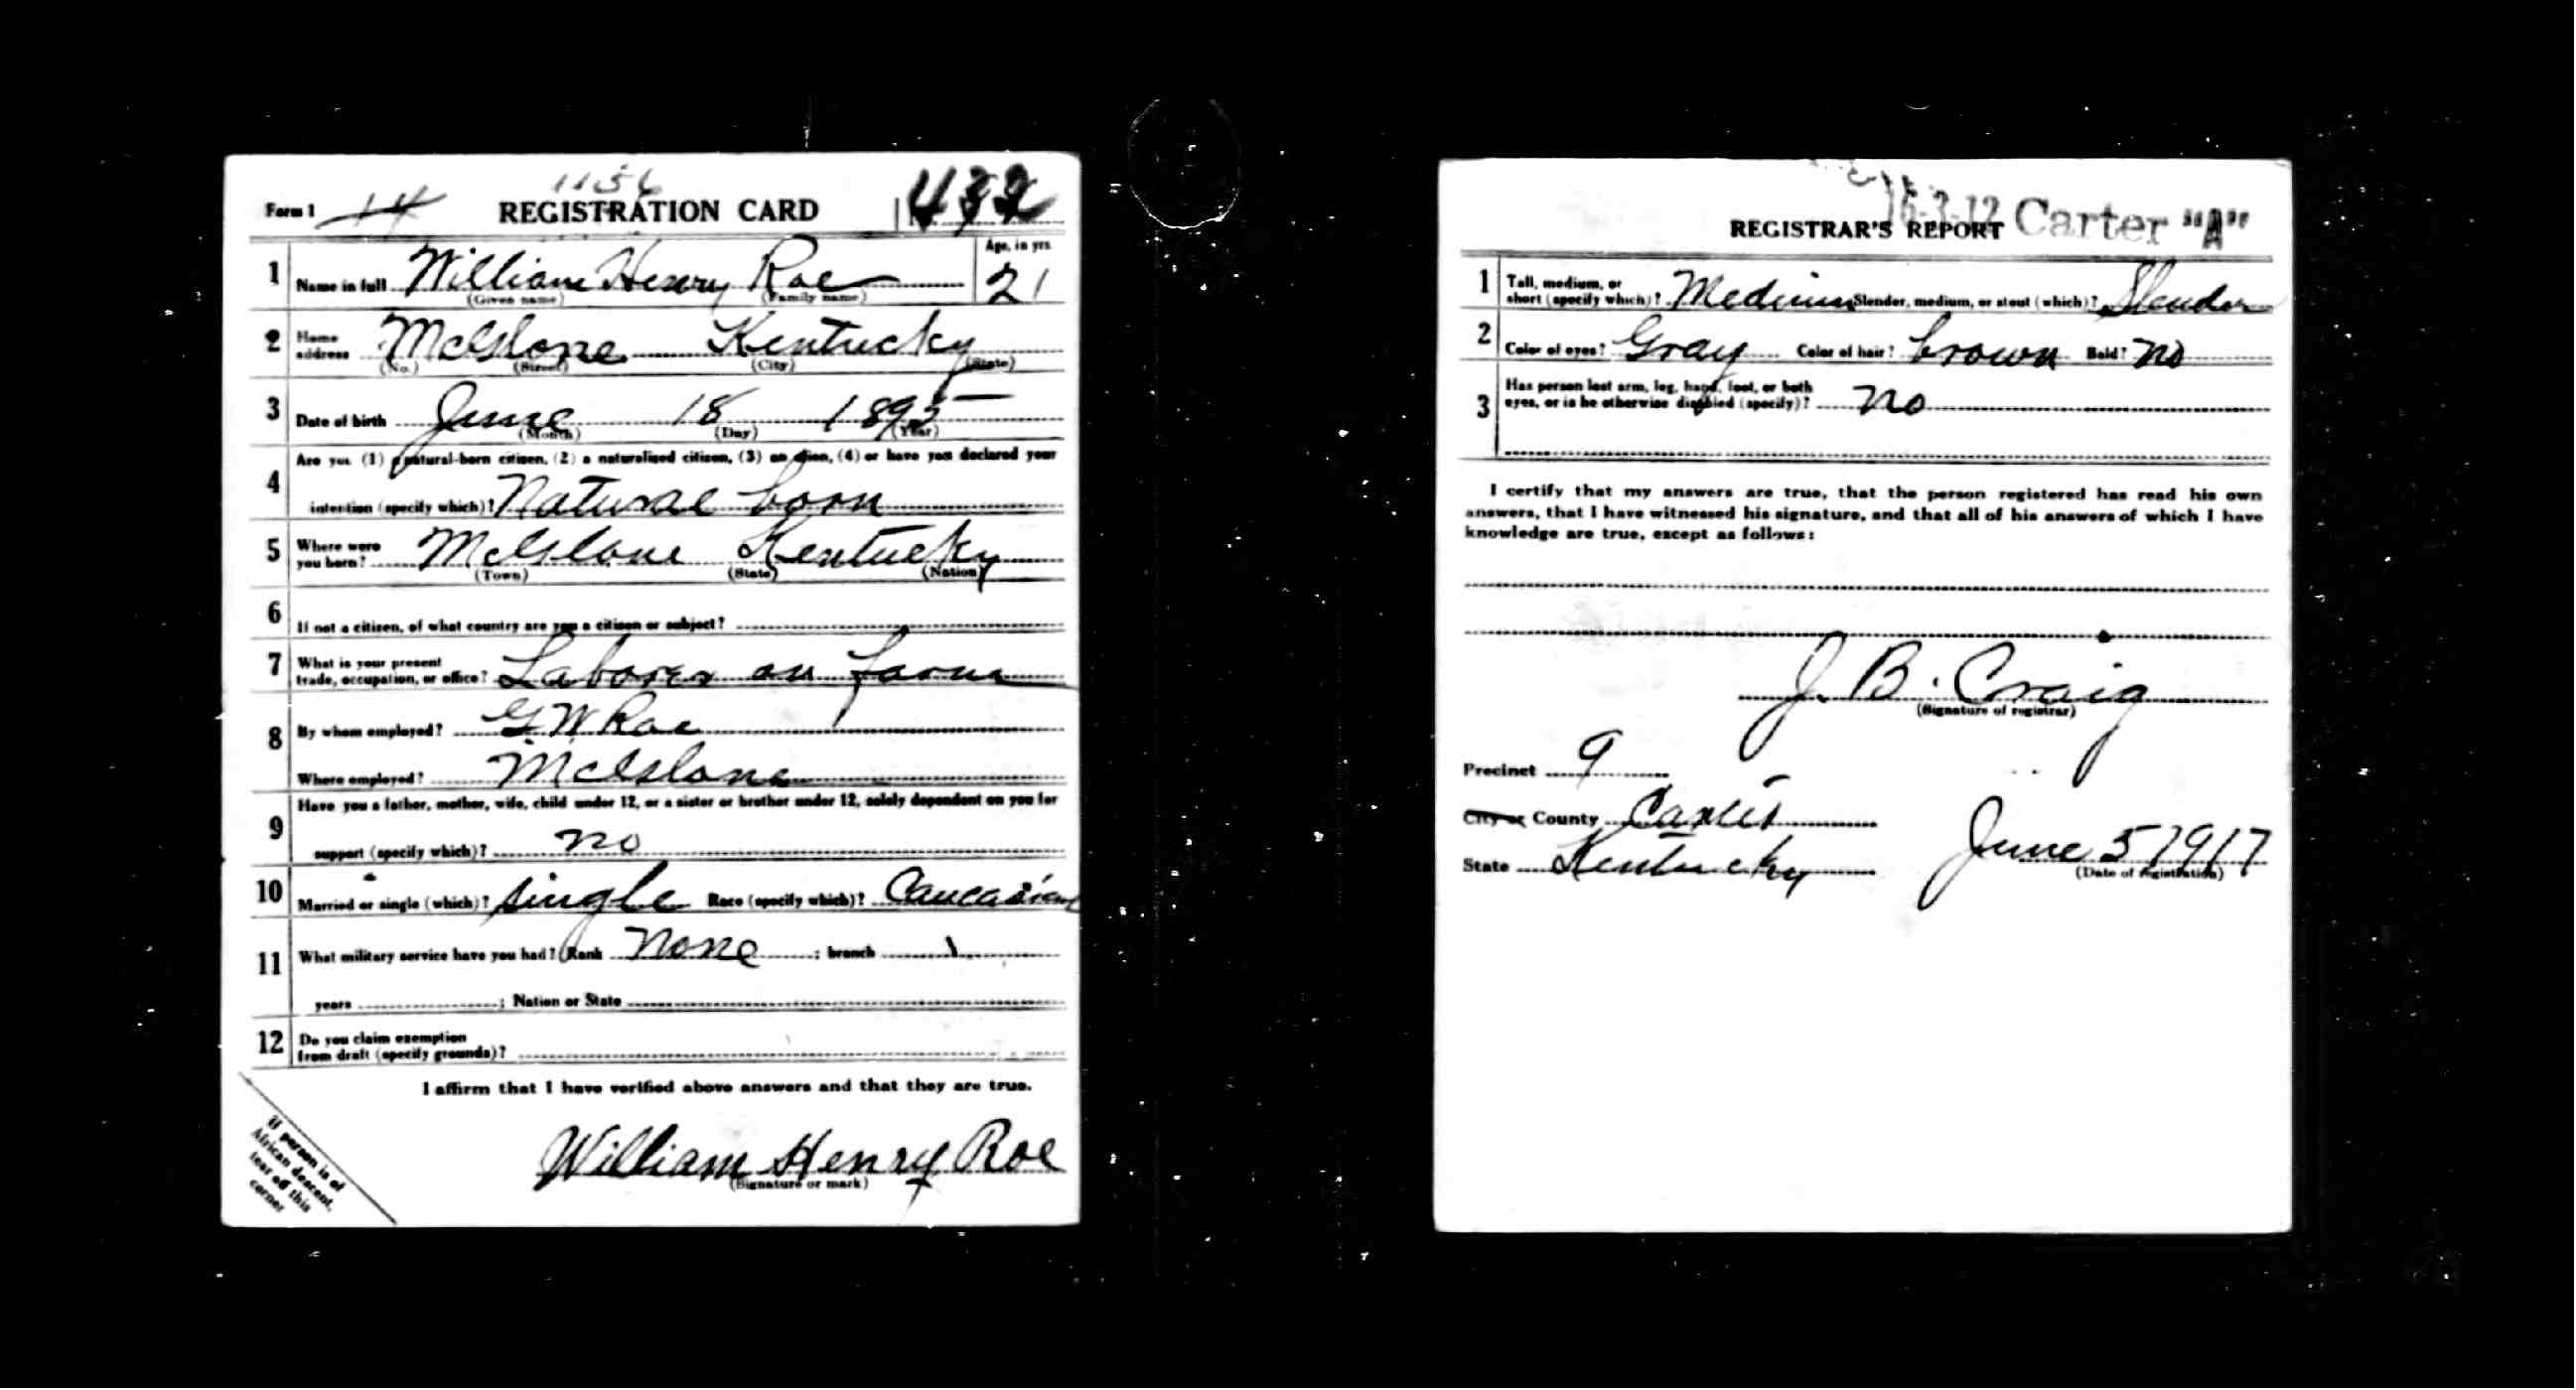 Form 1 14 1156
REGISTRATION CARD
1 Name in full William Henry Roe Age, in yrs 21
(Given name) (Family name)
2 Home address McGlone Kentucky
(No.) (Street) (City) (State)
3 Date of birth June 18 1895
(Month) (Day) (Year)
4 Are you (1) a natural-born citizen, (2) a naturalized citizen, (3) an alien, (4) or have you declared your
intention (specify which)? Natural born
5 Where were you born? McGlone Kentucky
(Town) (State) (Nation)
6 If not a citizen, of what country are you a citizen or subject?
7 What is your present trade, occupation, or office? Laborer on farm
8 By whom employed? G W Roe
Where employed? McGlone
9 Have you a father, mother, wife, child under 12, or a sister or brother under 12, solely dependent on you for
support (specify which)? no
10 Married or single (which)? single Race (specify which)? Caucasian
11 What military service have you had? Rank None ; branch
years ; Nation or State
12 Do you claim exemption
from draft (specify grounds)?
I affirm that I have verified above answers and that they are true.
William Henry Roe
(Signature or mark)
If person is of
African descent,
tear off this
corner
16-3-12 Carter "A"
REGISTRAR'S REPORT
1 Tall, medium, or short (specify which)? Medium Slender, medium, or stout (which)? Slender
2 Color of eyes? Gray Color of hair? brown Bald? no
3 Has person lost arm, leg, hand, foot, or both
eyes, or is he otherwise disabled (specify)? no
I certify that my answers are true, that the person registered has read his own
answers, that I have witnessed his signature, and that all of his answers of which I have
knowledge are true, except as follows:
J. B. Craig
(Signature of registrar)
Precinct 9
City or County Carter
State Kentucky June 5 1917
(Date of registration)